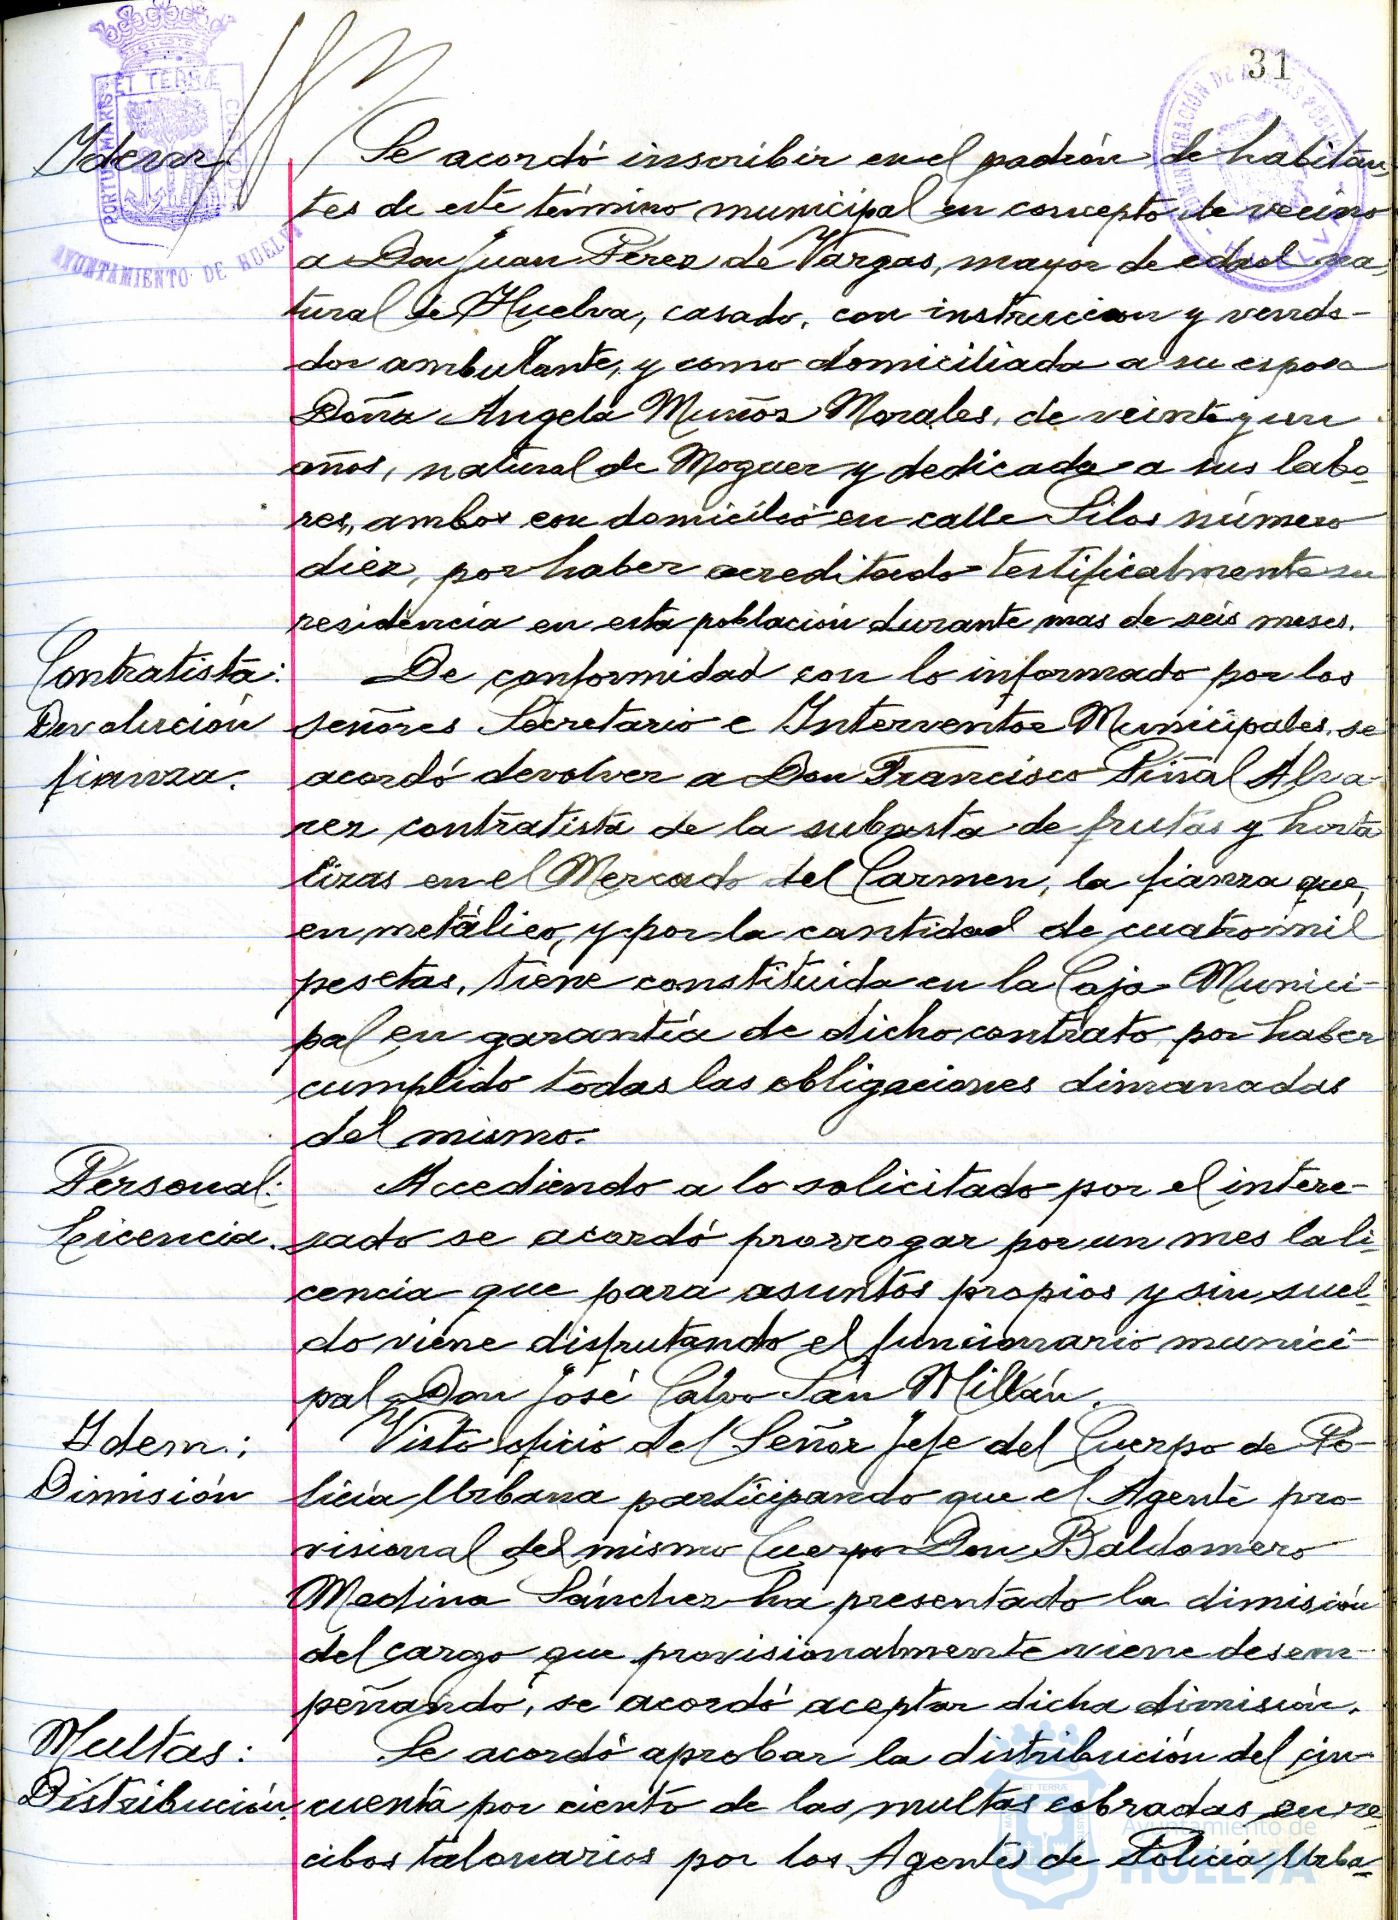 31
ET TERRÆ
PORTUS MARIS
CUSTODIA
AYUNTAMIENTO DE HUELVA
Idem.
Se acordó inscribir en el padrón de habitan-
tes de este término municipal en concepto de vecino
a Don Juan Pérez de Vargas, mayor de edad na-
tural de Huelva, casado, con instruccion y vende-
dor ambulante, y como domiciliada a su esposa
Doña Angela Muñoz Morales, de veinte y un
años, natural de Moguer y dedicada a sus labo-
res, ambos con domicilio en calle Silos número
diez, por haber acreditado testificalmente su
residencia en esta población durante mas de seis meses.
Contratista:
Devolución
fianza.
De conformidad con lo informado por los
señores Secretario e Interventor Municipales, se
acordó devolver a Don Francisco Piñal Alva-
rez contratista de la subasta de frutas y horta
lizas en el Mercado del Carmen, la fianza que,
en metálico, y por la cantidad de cuatro mil
pesetas, tiene constituida en la Caja Munici-
pal en garantía de dicho contrato, por haber
cumplido todas las obligaciones dimanadas
del mismo.
Personal:
Licencia.
Accediendo a lo solicitado por el intere-
sado se acordó prorrogar por un mes la li-
cencia que para asuntos propios y sin suel-
do viene disfrutando el funcionario munici-
pal Don José Calvo San Millán.
Idem.:
Dimisión
Visto oficio del Señor Jefe del Cuerpo de Po-
licía Urbana participando que el Agente pro-
visional del mismo Cuerpo Don Baldomero
Medina Sánchez ha presentado la dimisión
del cargo que provisionalmente viene desem-
peñando, se acordó aceptar dicha dimisión.
Multas:
Distribución.
Se acordó aprobar la distribución del cin-
cuenta por ciento de las multas cobradas en re
cibos talonarios por los Agentes de Policía Urba-
Ayuntamiento de
HUELVA